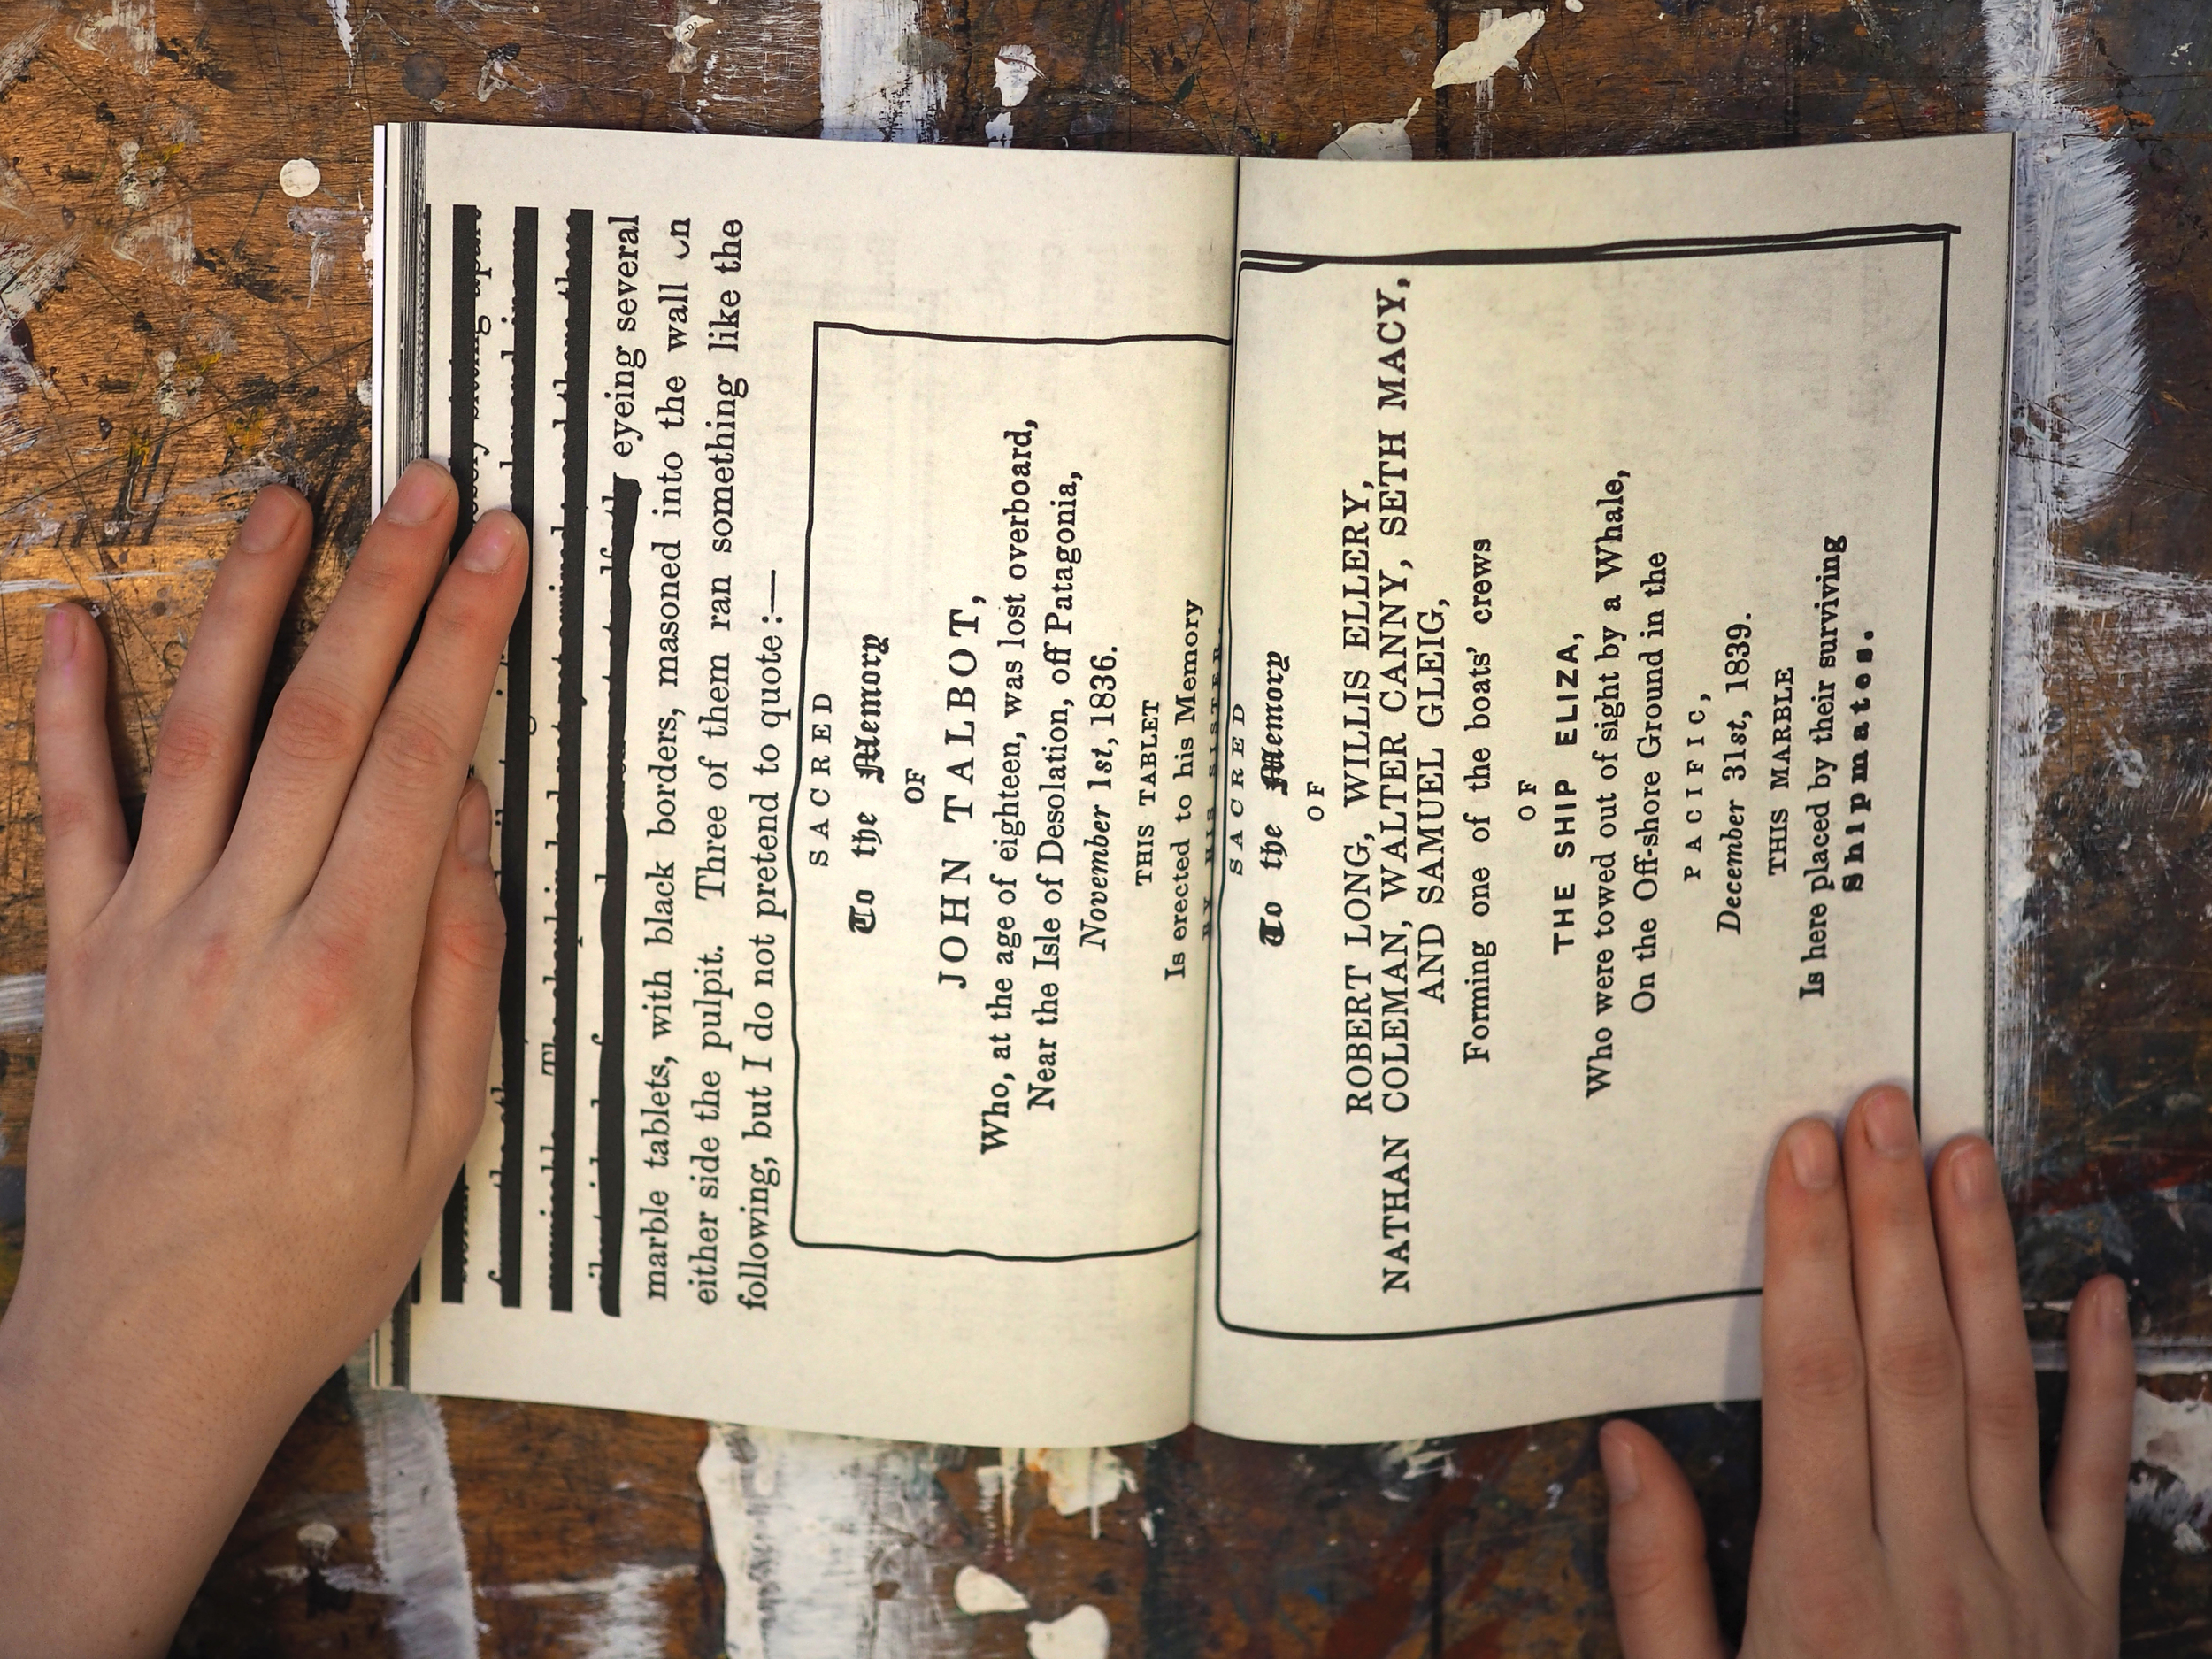 eyeing several
marble tablets, with black borders, masoned into the wall on
either side the pulpit. Three of them ran something like the
following, but I do not pretend to quote:—
SACRED
To the Memory
OF
JOHN TALBOT,
Who, at the age of eighteen, was lost overboard,
Near the Isle of Desolation, off Patagonia,
November 1st, 1836.
THIS TABLET
Is erected to his Memory
BY HIS SISTER.
SACRED
To the Memory
OF
ROBERT LONG, WILLIS ELLERY,
NATHAN COLEMAN, WALTER CANNY, SETH MACY,
AND SAMUEL GLEIG,
Forming one of the boats' crews
OF
THE SHIP ELIZA,
Who were towed out of sight by a Whale,
On the Off-shore Ground in the
PACIFIC,
December 31st, 1839.
THIS MARBLE
Is here placed by their surviving
Shipmates.